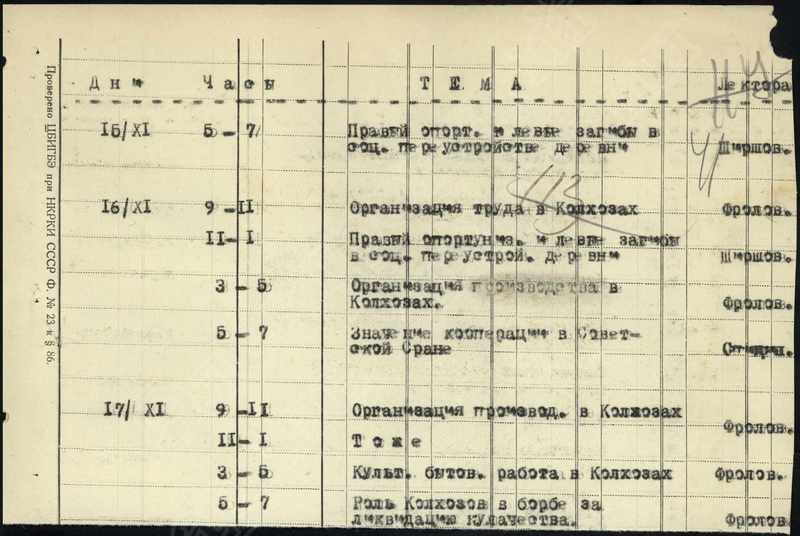 Проверено ЦБИГБЭ при НКРКИ СССР Ф. № 23 к § 86.
Дни Часы ТЕМА Лектора
15/XI 5 - 7 Правый опорт. и левые загибы в
соц. переустройстве деревни Ширшов.
16/XI 9 - II Организация труда в Колхозах Фролов.
II - I Правый опортуниз. и левые загибы
в соц. переустрой. деревни Ширшов.
3 - 5 Организация производства в
Колхозах. Фролов.
5 - 7 Значение кооперации в Совет-
ской Сране
17/XI 9 - II Организация производ. в Колхозах
Фролов.
II - I Тоже
3 - 5 Культ. бытов. работа в Колхозах Фролов.
5 - 7 Роль Колхозов в борбе за
ликвидацию кулачества. Фролов
113